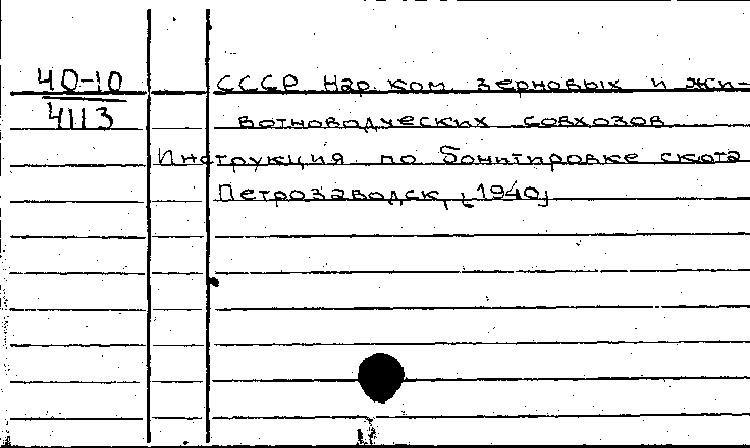 40-10
4113
СССР Нар. ком. зерновых и жи-
вотноводческих совхозов
Инструкция по бонитировке скота
Петрозаводск, [1940]